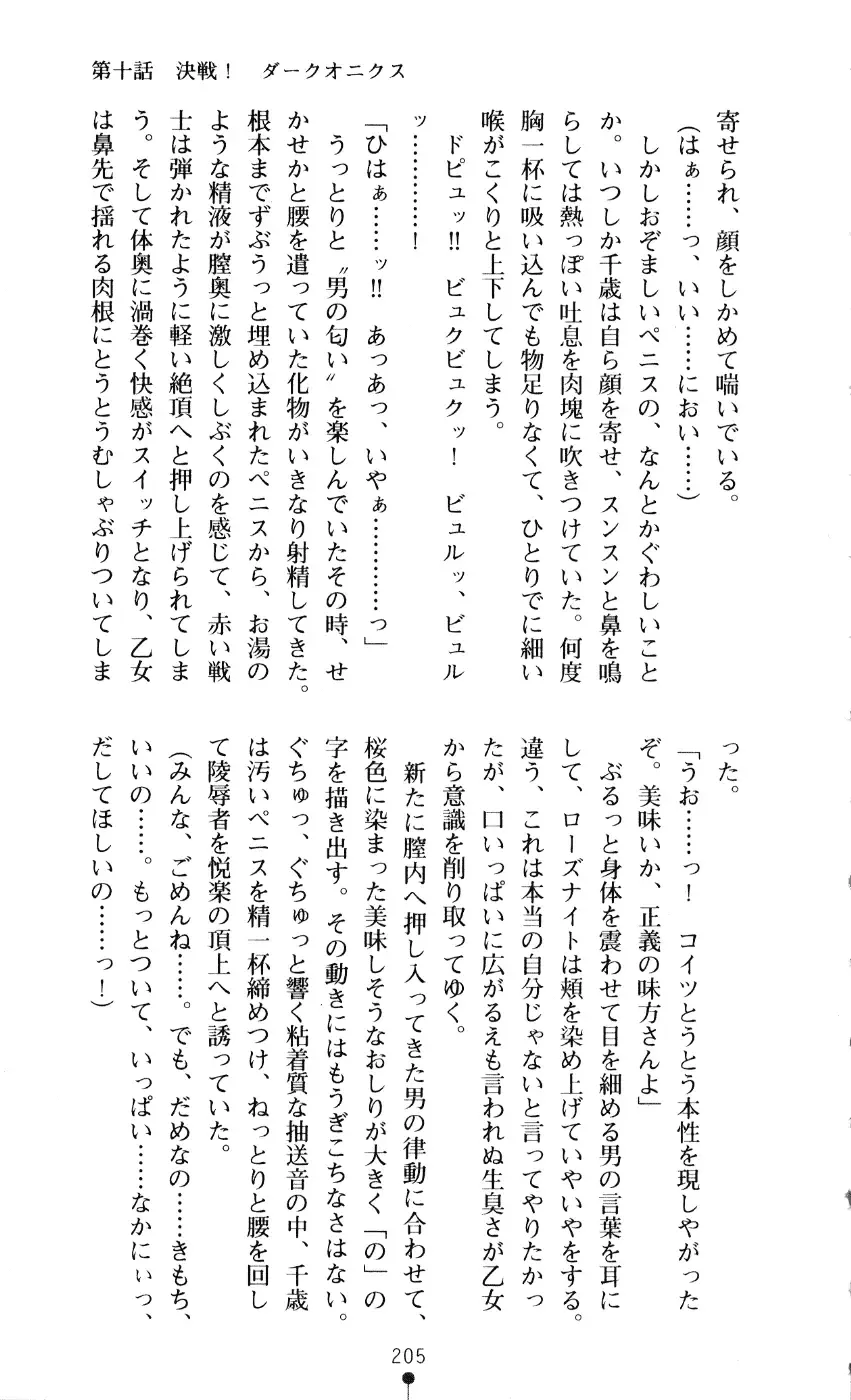 第十話　決戦！　ダークオニクス
寄せられ、顔をしかめて喘いでいる。
（はぁ……っ、いい……におい……）
しかしおぞましいペニスの、なんとかぐわしいこと
か。いつしか千歳は自ら顔を寄せ、スンスンと鼻を鳴
らしては熱っぽい吐息を肉塊に吹きつけていた。何度
胸一杯に吸い込んでも物足りなくて、ひとりでに細い
喉がこくりと上下してしまう。
ドピュッ!!　ビュクビュクッ！　ビュルッ、ビュル
ッ…………！
「ひはぁ……ッ!!　あっあっ、いやぁ…………っ」
うっとりと〝男の匂い〟を楽しんでいたその時、せ
かせかと腰を遣っていた化物がいきなり射精してきた。
根本までずぶうっと埋め込まれたペニスから、お湯の
ような精液が膣奥に激しくしぶくのを感じて、赤い戦
士は弾かれたように軽い絶頂へと押し上げられてしま
う。そして体奥に渦巻く快感がスイッチとなり、乙女
は鼻先で揺れる肉根にとうとうむしゃぶりついてしま
った。
「うお……っ！　コイツとうとう本性を現しやがった
ぞ。美味いか、正義の味方さんよ」
ぶるっと身体を震わせて目を細める男の言葉を耳に
して、ローズナイトは頬を染め上げていやいやをする。
違う、これは本当の自分じゃないと言ってやりたかっ
たが、口いっぱいに広がるえも言われぬ生臭さが乙女
から意識を削り取ってゆく。
新たに膣内へ押し入ってきた男の律動に合わせて、
桜色に染まった美味しそうなおしりが大きく「の」の
字を描き出す。その動きにはもうぎこちなさはない。
ぐちゅっ、ぐちゅっと響く粘着質な抽送音の中、千歳
は汚いペニスを精一杯締めつけ、ねっとりと腰を回し
て陵辱者を悦楽の頂上へと誘っていた。
（みんな、ごめんね……。でも、だめなの……きもち、
いいの……。もっとついて、いっぱい……なかにぃっ、
だしてほしいの……っ！）
205